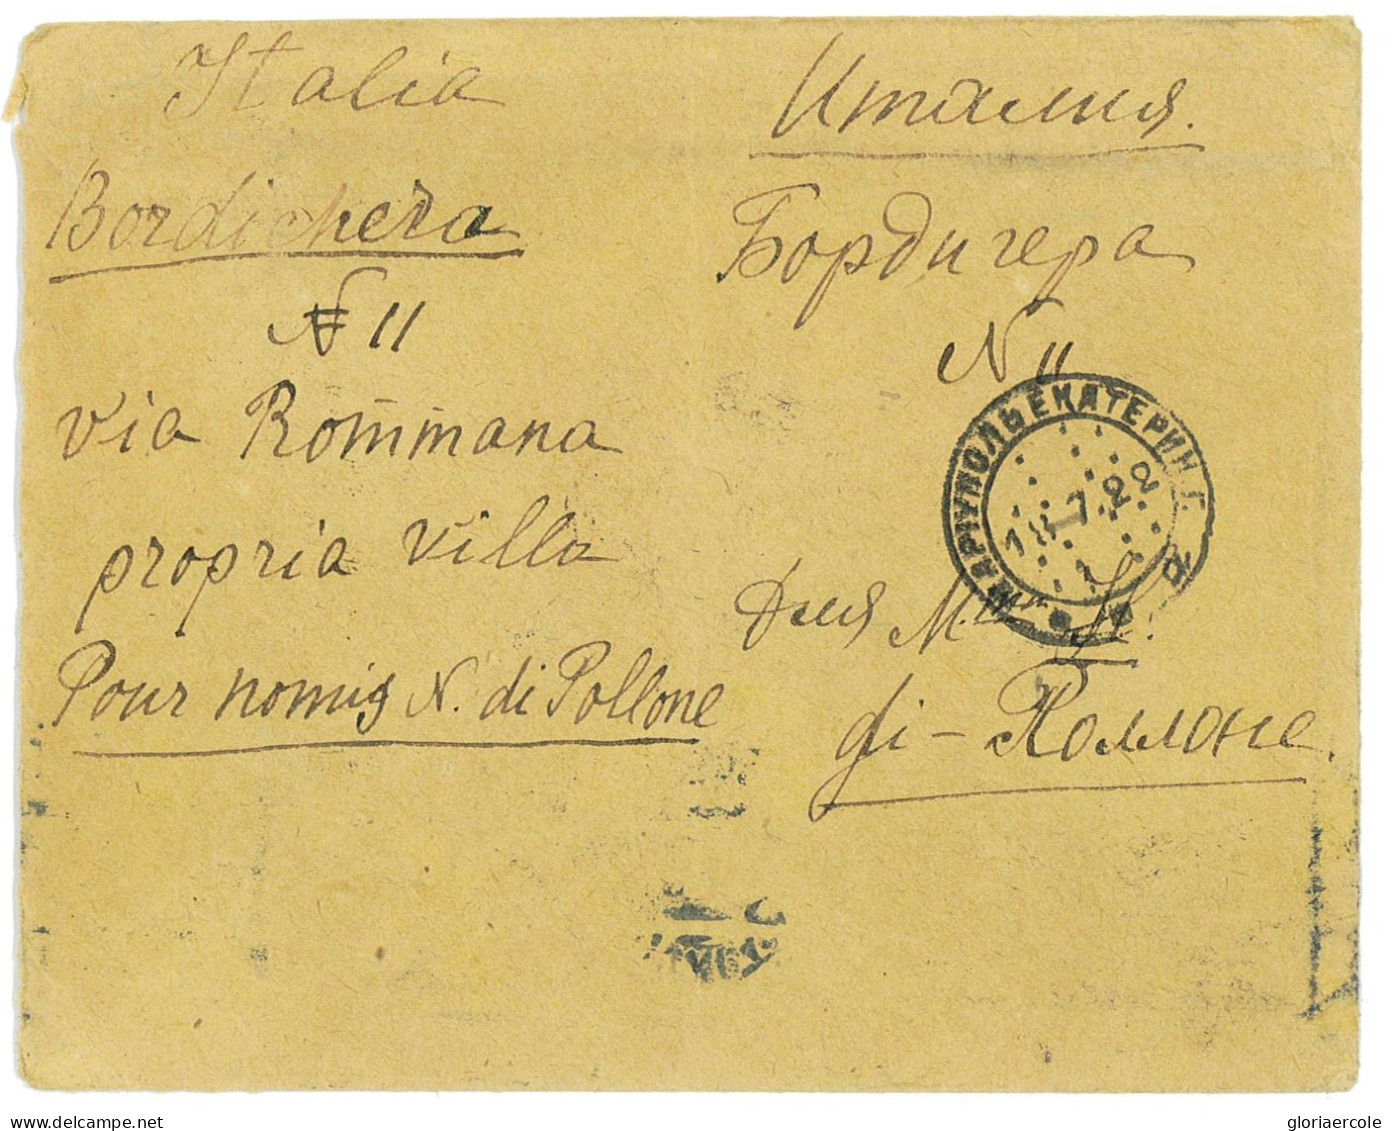 Italia
Bordichera
№ 11
via Rommana
propria villa
Pour nomig N. di Pollone
Италия.
Бордигера
N 11
МАРІУПОЛЬ ЕКАТЕРИН. Г.
18-7.22
Для M. N.
di - Поллоне.
gloriaercole